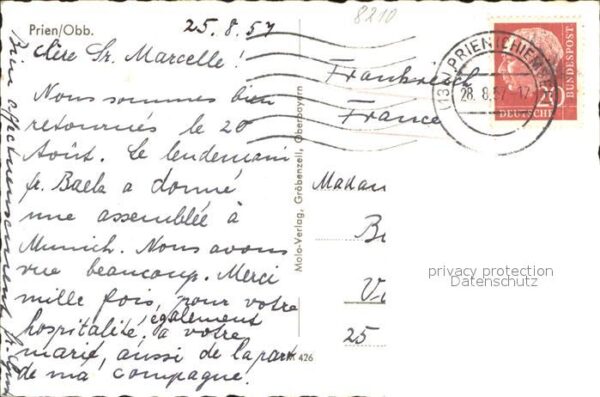 25.8.57
8210
Prien/Obb.
Chère Sr. Marcelle!
Nous sommes bien
retournés le 20
Août. Le lendemain
fr. Baela a donné
une assemblée à
Munich. Nous avons
vue beaucoup. Merci
mille fois, pour votre
hospitalité, également
a votre
marie, aussi de la part
de ma compagne.
Bien affectueusement
Mola-Verlag, Gröbenzell, Oberbayern
426
Frankreich
France
Madam
25
PRIEN (CHIEMSEE
28.8.57.-17
20
DEUTSCHE
BUNDESPOST
privacy protection
Datenschutz